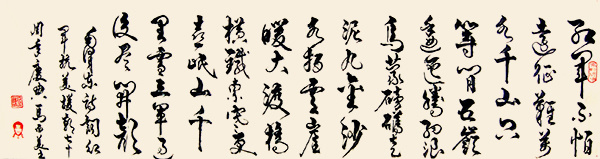 紅軍不怕
遠征難萬
水千山只
等閒五嶺
逶迤騰細浪
烏蒙磅礴走
泥丸金沙
水拍雲崖
暖大渡橋
橫鐵索寒更
喜岷山千
里雪三軍過
後盡開顏
毛澤東詩詞紅
軍